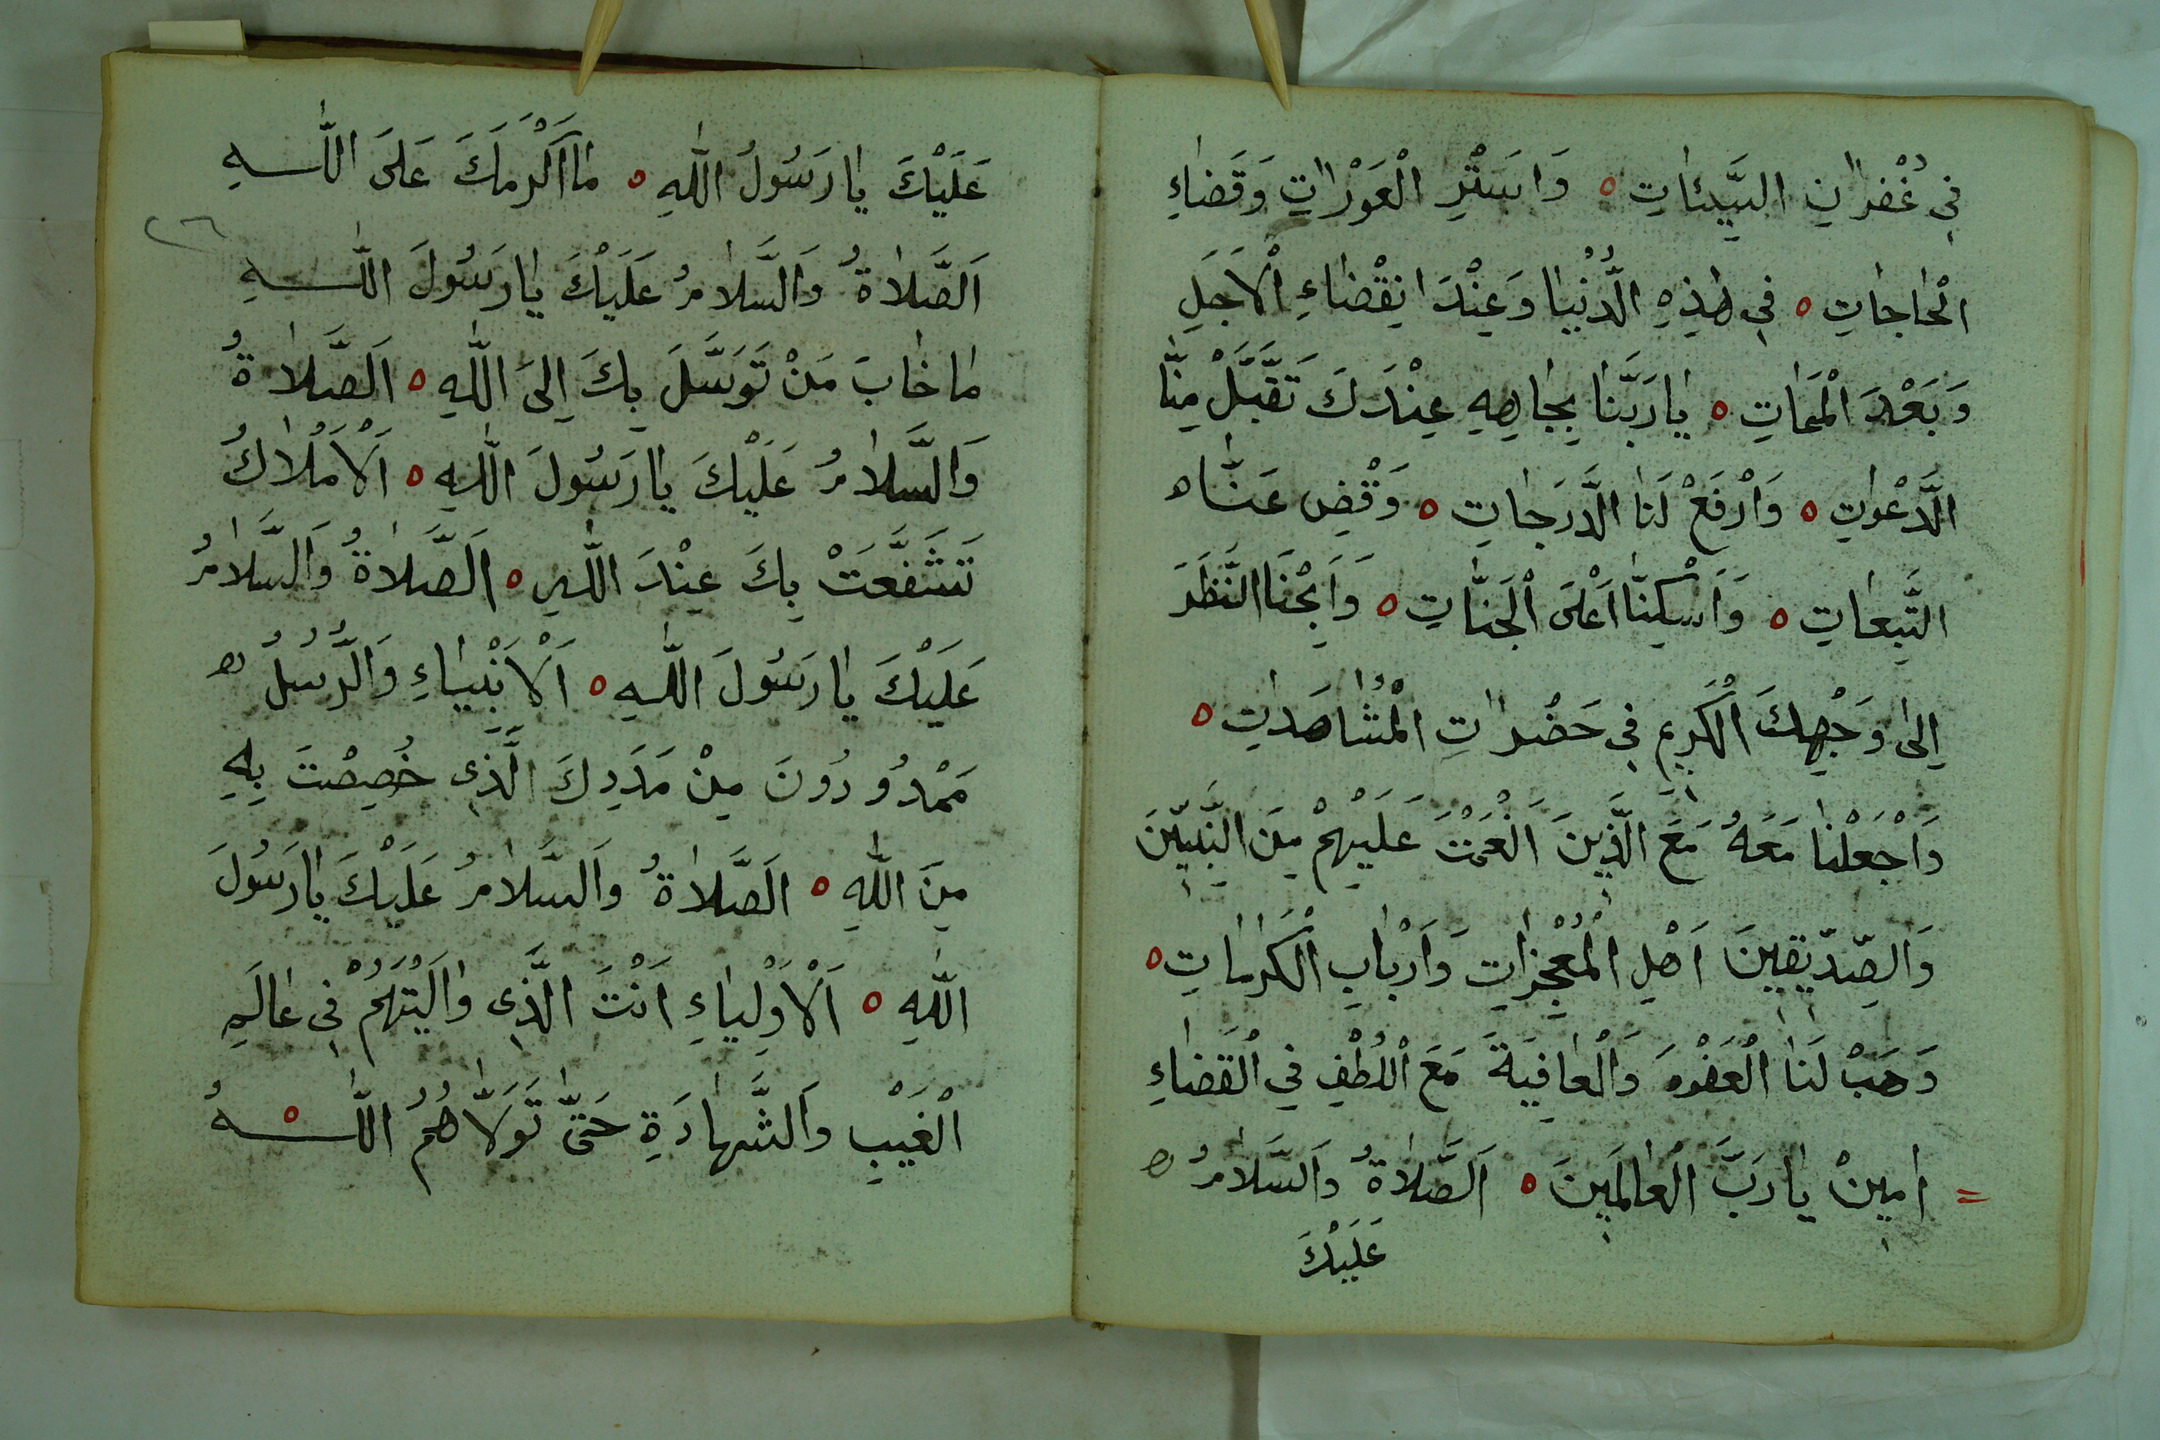 فِى غُفْرَانِ السَّيِّئَاتِ ه وَاسَتْرِ الْعَوْرَاتِ وَقَضَاءِ
الْحَاجَاتِ ه فِى هٰذِهِ الدُّنْيَا وَعِنْدَ انِقْضَاءِ الْاَجَلِ
وَبَعْدَ الْمَمَاتِ ه يَارَبَّنَا بِجَاهِهِ عِنْدَكَ تَقَبَّلْ مِنَّا
الدَّعْوَاتِ ه وَارْفَعْ لَنَا الدَّرَجَاتِ ه وَقْضِ عَنَّا ه
التَّبِعَاتِ ه وَاَسْكِنَّا اَعْلَى الْجَنَّاتِ ه وَاَبِحْنَا النَّظَرَ
اِلٰى وَجْهِكَ الْكَرِيمِ فِى حَضْرَاتِ الْمُشَاهَدَاتِ ه
وَاجْعَلْنَا مَعَهُ مَعَ الَّذِينَ اَنْعَمْتَ عَلَيْهِمْ مِنَ النَّبِيّينَ
وَالصِّدِّيقِينَ اَهْلِ الْمُعْجِزَاتِ وَاَرْبَابِ الْكَرَامَاتِ ه
وَهَبْ لَنَا الْعَفْوَ وَالْعَافِيَةَ مَعَ اللُطْفِ فِي الْقَضَاءِ
اٰمِينْ يَارَبَّ الْعَالَمِينَ ه اَلصَّلَاةُ وَالسَّلَامُ ه
عَلَيْكَ
عَلَيْكَ يَارَسُولَ اللّٰهِ ه مَا اَكْرَمَكَ عَلَى اللّٰهِ
٢٦
اَلصَّلَاةُ وَالسَّلَامُ عَلَيْكَ يَارَسُولَ اللّٰهِ
مَاخَابَ مَنْ تَوَسَّلَ بِكَ اِلَى اللّٰهِ ه اَلصَّلَاةُ
وَالسَّلَامُ عَلَيْكَ يَارَسُولَ اللّٰهِ ه اَلْاَمْلَاكُ
تَشَفَّعَتْ بِكَ عِنْدَ اللّٰهِ ه اَلصَّلَاةُ وَالسَّلَامُ
عَلَيْكَ يَارَسُولَ اللّٰهِ ه اَلْاَنْبِيَاءِ وَالرُّسُلُ ه
مَمْدُودُونَ مِنْ مَدَدِكَ الَّذِى خُصِصْتَ بِهِ
مِنَ اللّٰهِ ه اَلصَّلَاةُ وَالسَّلَامُ عَلَيْكَ يَارَسُولَ
اللّٰهِ ه اَلْاَوْلِيَاءِ اَنْتَ الَّذِى وَالَيْتَهُمْ فِى عَالَمِ
الْغَيْبِ وَالشَّهَادَةِ حَتَّى تَوَلَّاهُمُ اللّٰهُ ه